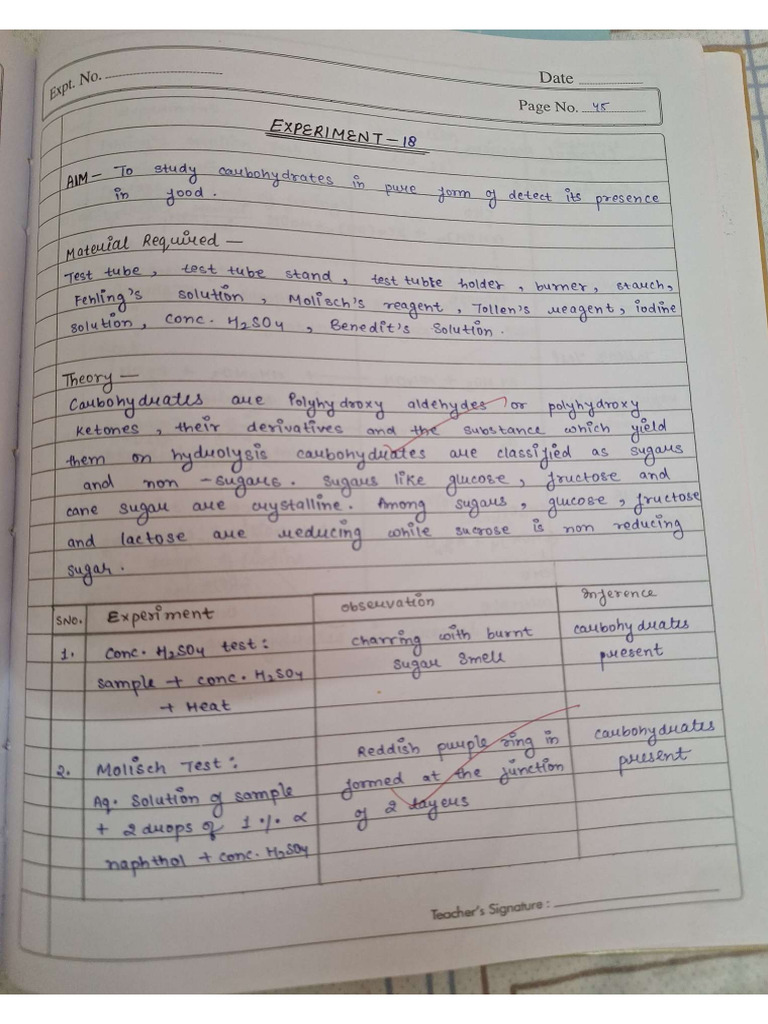 Expt. No.
Date
Page No. 45
EXPERIMENT-18
AIM- To study carbohydrates in pure form of detect its presence
in food.
Material Required -
Test tube, test tube stand, test tubse holder, burner, starch,
Fehling's solution, Molisch's reagent, Tollen's reagent, iodine
solution, conc. H2SO4, Benedit's Solution.
Theory-
Carbohydrates are Polyhydroxy aldehydes or polyhydroxy
ketones, their derivatives and the substance which yield
them on hydrolysis carbohydrates are classified as sugars
and non-sugars. Sugars like glucose, fructose and
cane sugar are crystalline. Among sugars, glucose, fructose
and lactose are reducing while sucrose is non reducing
sugar.
SNO. Experiment observation Inference
1. Conc. H2SO4 test: charring with burnt carbohydrates
sample + conc. H2SO4 sugar smell present
+ Heat
2. Molisch Test: Reddish purple ring in carbohydrates
Aq. Solution of sample formed at the junction present
+ 2 drops of 1 % α of 2 layers
naphthol + conc. H2SO4
Teacher's Signature :